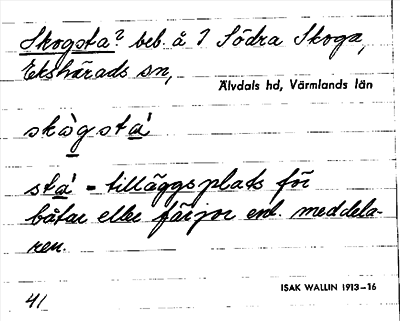 Skogsta? beb. å 7 Södra Skoga,
Ekshärads sn,
Älvdals hd, Värmlands län
skògstá
stá - tilläggsplats för
båtar eller färjor enl. meddela-
ren.
ISAK WALLIN 1913–16
41